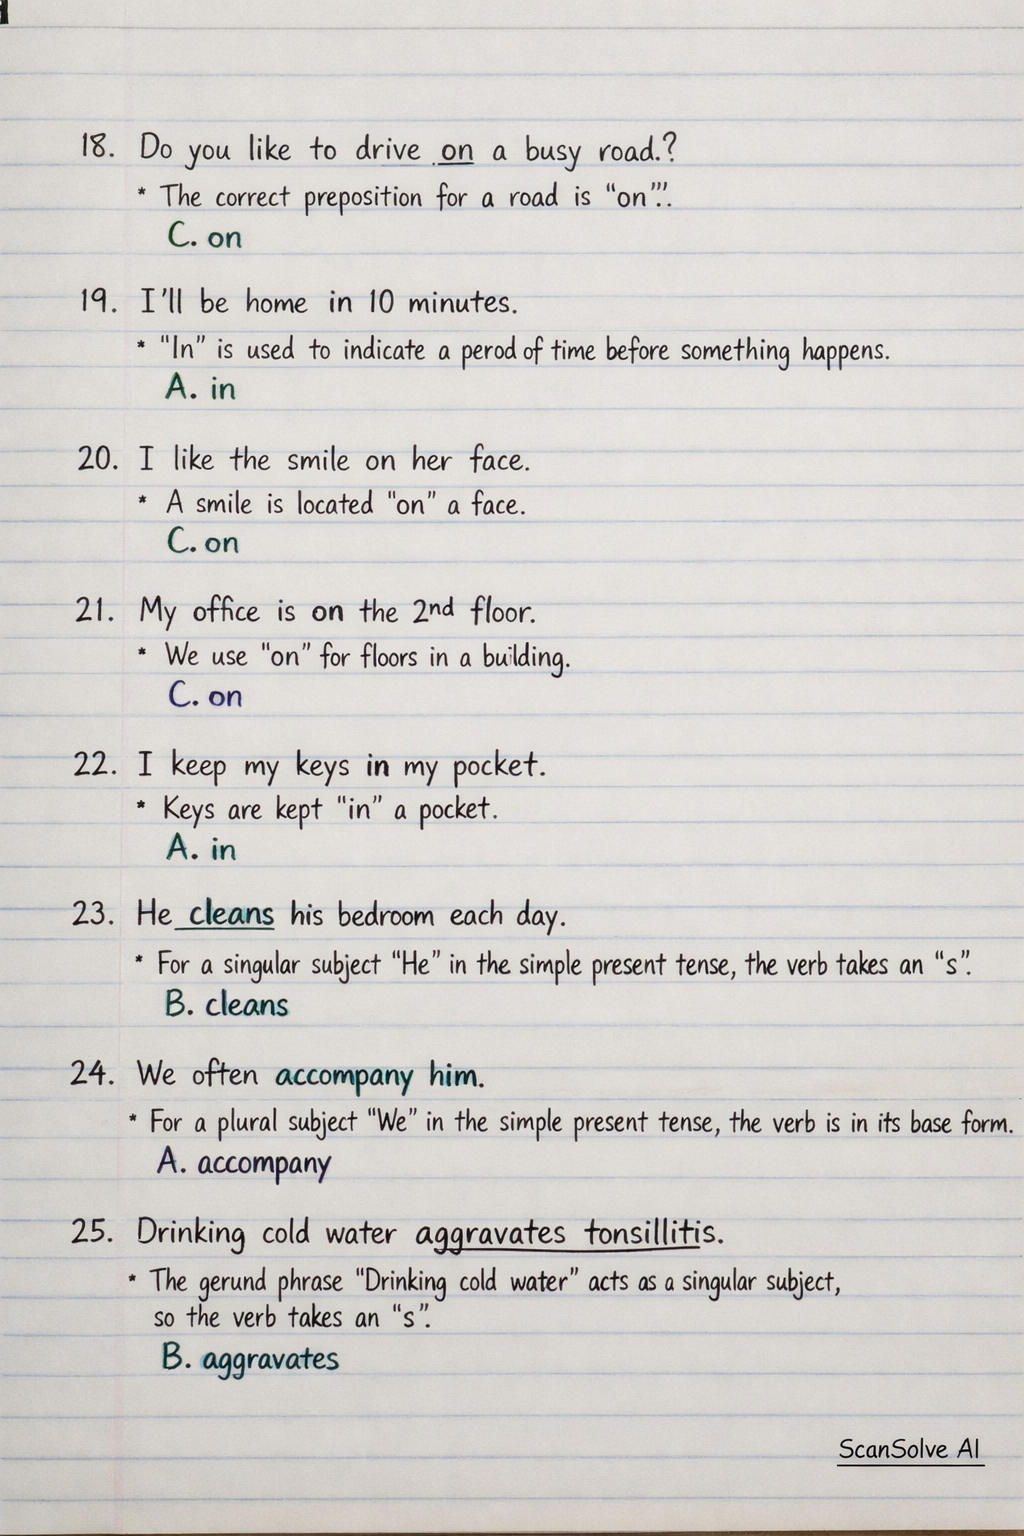 18. Do you like to drive on a busy road.?
* The correct preposition for a road is "on"'.
C. on
19. I'll be home in 10 minutes.
* "In" is used to indicate a perod of time before something happens.
A. in
20. I like the smile on her face.
* A smile is located "on" a face.
C. on
21. My office is on the 2nd floor.
* We use "on" for floors in a building.
C. on
22. I keep my keys in my pocket.
* Keys are kept "in" a pocket.
A. in
23. He cleans his bedroom each day.
* For a singular subject "He" in the simple present tense, the verb takes an "s".
B. cleans
24. We often accompany him.
* For a plural subject "We" in the simple present tense, the verb is in its base form.
A. accompany
25. Drinking cold water aggravates tonsillitis.
* The gerund phrase "Drinking cold water" acts as a singular subject,
so the verb takes an "s".
B. aggravates
ScanSolve AI